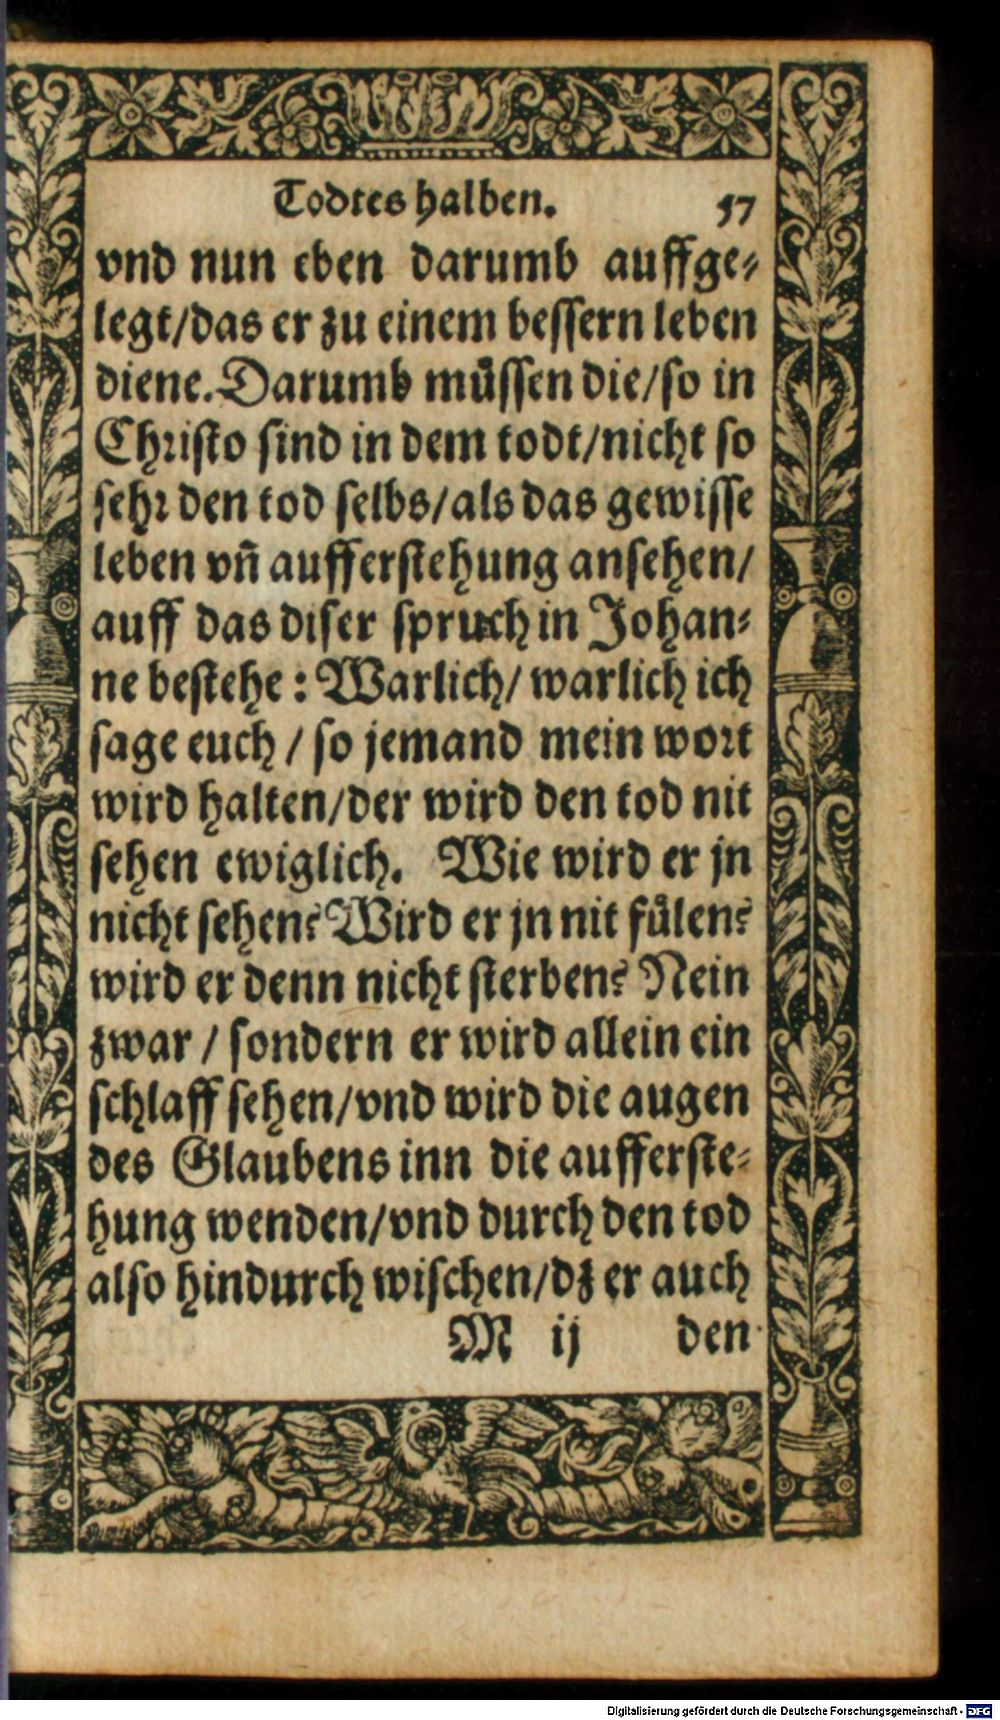 Todtes halben. 57
vnd nun eben darumb auffge⸗
legt/das er zu einem bessern leben
diene. Darumb muͤssen die/so in
Christo sind in dem todt/nicht so
sehr den tod selbs/als das gewisse
leben vñ aufferstehung ansehen/
auff das diser spruch in Johan⸗
ne bestehe: Warlich/ warlich ich
sage euch / so jemand mein wort
wird halten/der wird den tod nit
sehen ewiglich. Wie wird er jn
nicht sehen? Wird er jn nit fuͤlen?
wird er denn nicht sterben? Nein
zwar / sondern er wird allein ein
schlaff sehen/vnd wird die augen
des Glaubens inn die aufferste⸗
hung wenden/vnd durch den tod
also hindurch wischen/dz er auch
M ij den
Digitalisierung gefördert durch die Deutsche Forschungsgemeinschaft - DFG